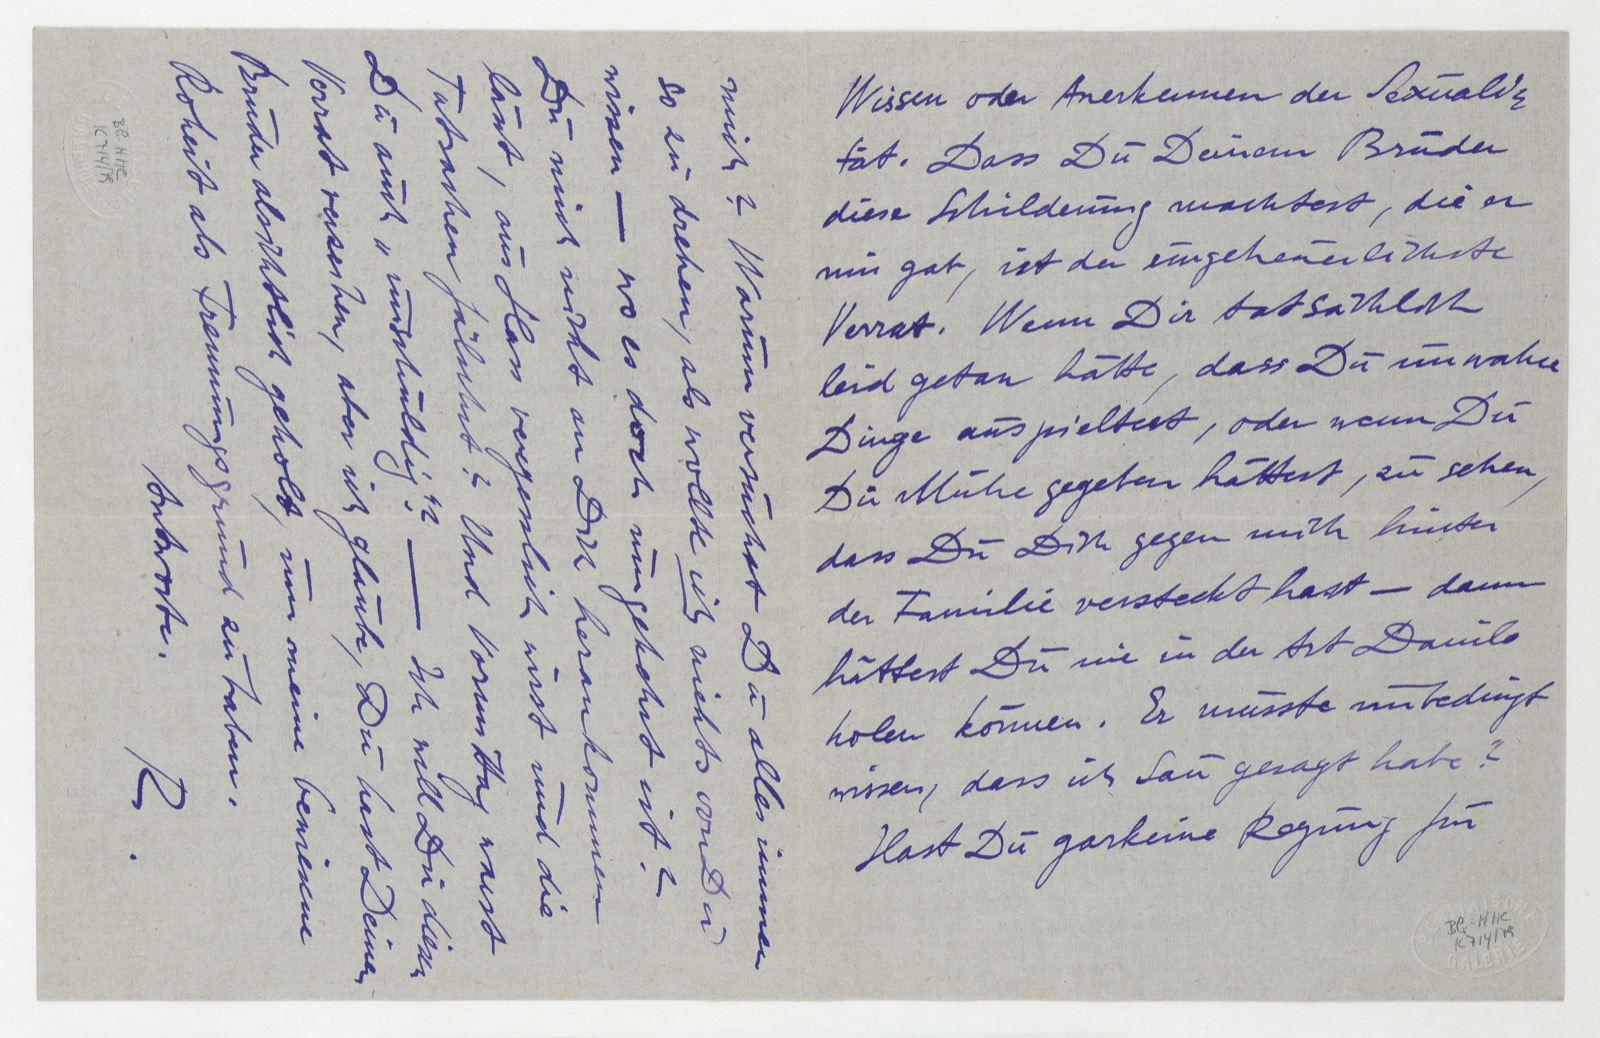 Wissen oder Anerkennen der Sexuali=
tät. Dass Du Deinem Bruder
diese Schilderung machtest, die er
mir gab, ist der ungeheuerlichste
Verrat. Wenn Dir tatsächlich
leid getan hätte, dass Du unwahre
Dinge ausspieltest, oder wenn Du
Dir Mühe gegeben hättest, zu sehen,
dass Du Dich gegen mich hinter
der Familie versteckt hast — dann
hättest Du nie in der Art Danilo
holen können. Er musste unbedingt
wissen, dass ich Sau gesagt habe?
Hast Du garkeine Regung für
mich? Warum versuchst Du alles immer
so zu drehen, als wollte ich nichts von Dir
wissen — wo es doch umgekehrt ist?
Du mich nicht an Dich herankommen
lässt, aus Hass vergesslich wirst und die
Tatsachen fälschst? Und Vormittag warst
Du auch „unschuldig"? — Ich will Dir diesen
Verrat verzeihen, aber ich glaube, Du hast Deinen
Bruder absichtlich geholt, um meine bewiesene
Roheit als Trennungsgrund zu haben.
Antworte.
R.
BG-HHC
K 714/79
BG-HHC
K 714/79
BERLINISCHE
GALERIE